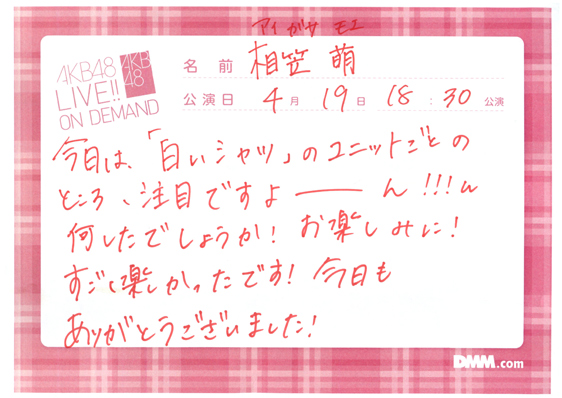 アイガサ モエ
名前 相笠 萌
AKB48
LIVE!!
ON DEMAND
AKB48
公演日 4月 19日 18:30 公演
今日は、「白いシャツ」のユニットごとの
ところ、注目ですよ――ん!!!
何したでしょうか! お楽しみに!
すごく楽しかったです! 今日も
ありがとうございました!
DMM.com